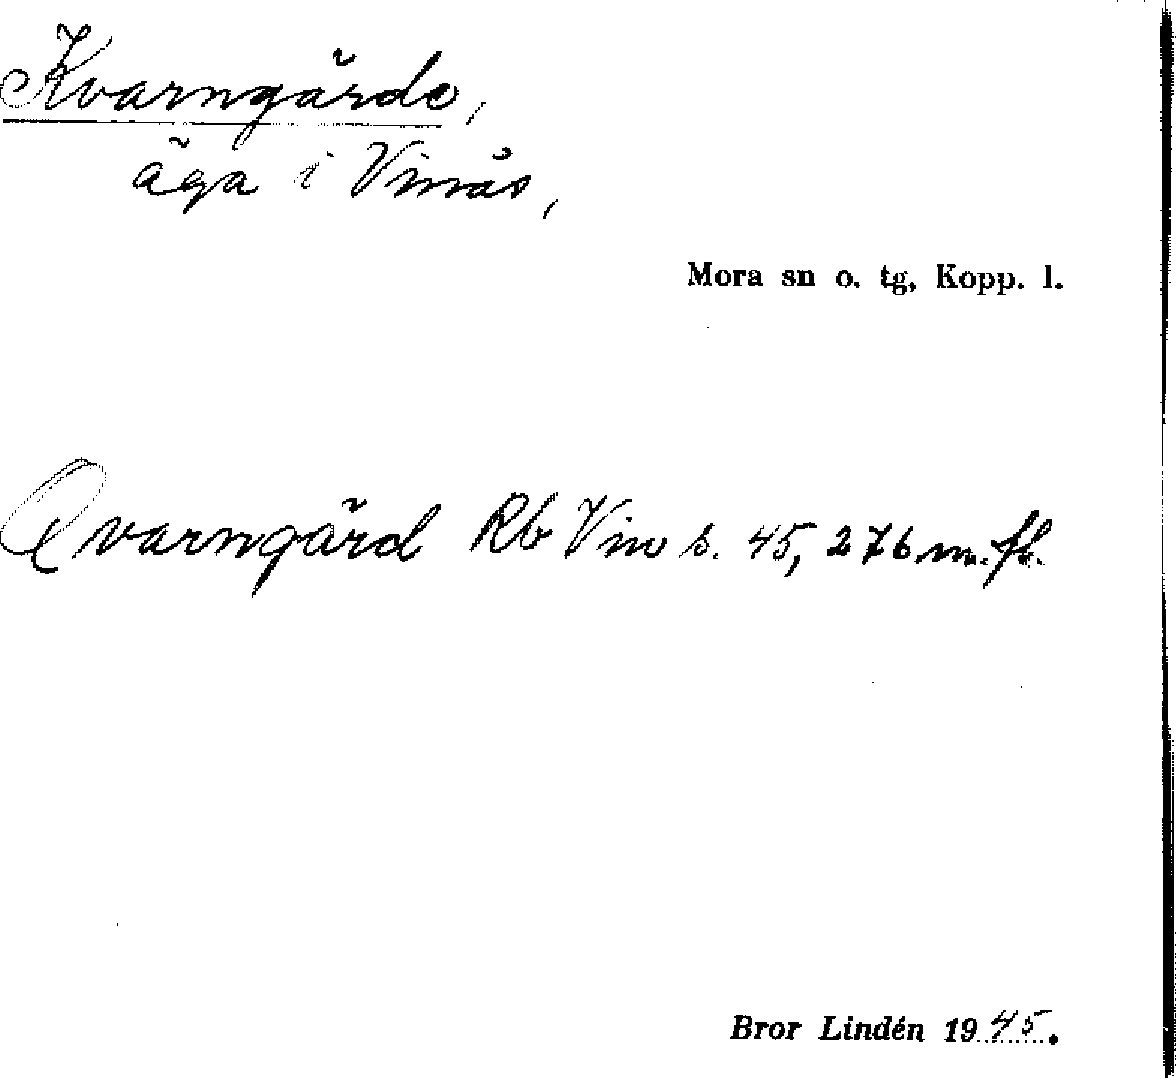 Kvarngärde,
äga i Vinäs,
Mora sn o. tg, Kopp. l.
Qvarngärd Rb Vin s. 45, 276 m. fl.
Bror Lindén 1945.